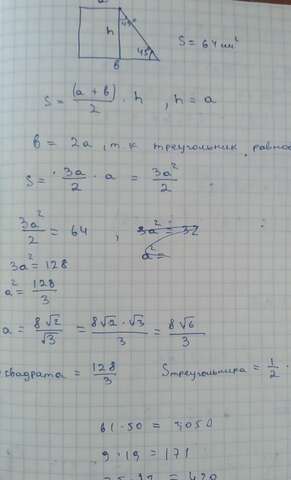 a
45°
h
45°
в
S = 64 см²
S = (a + в)/2 · h , h = a
в = 2a, т к треугольник равно
S = 3a/2 · a = 3a²/2
3a²/2 = 64 , 3a² = 32
a² =
3a² = 128
a² = 128/3
a = 8√2/√3 = 8√2 · √3/3 = 8√6/3
квадрата = 128/3 Sтреугольника = 1/2 ·
61 · 50 = 3050
9 · 19 = 171